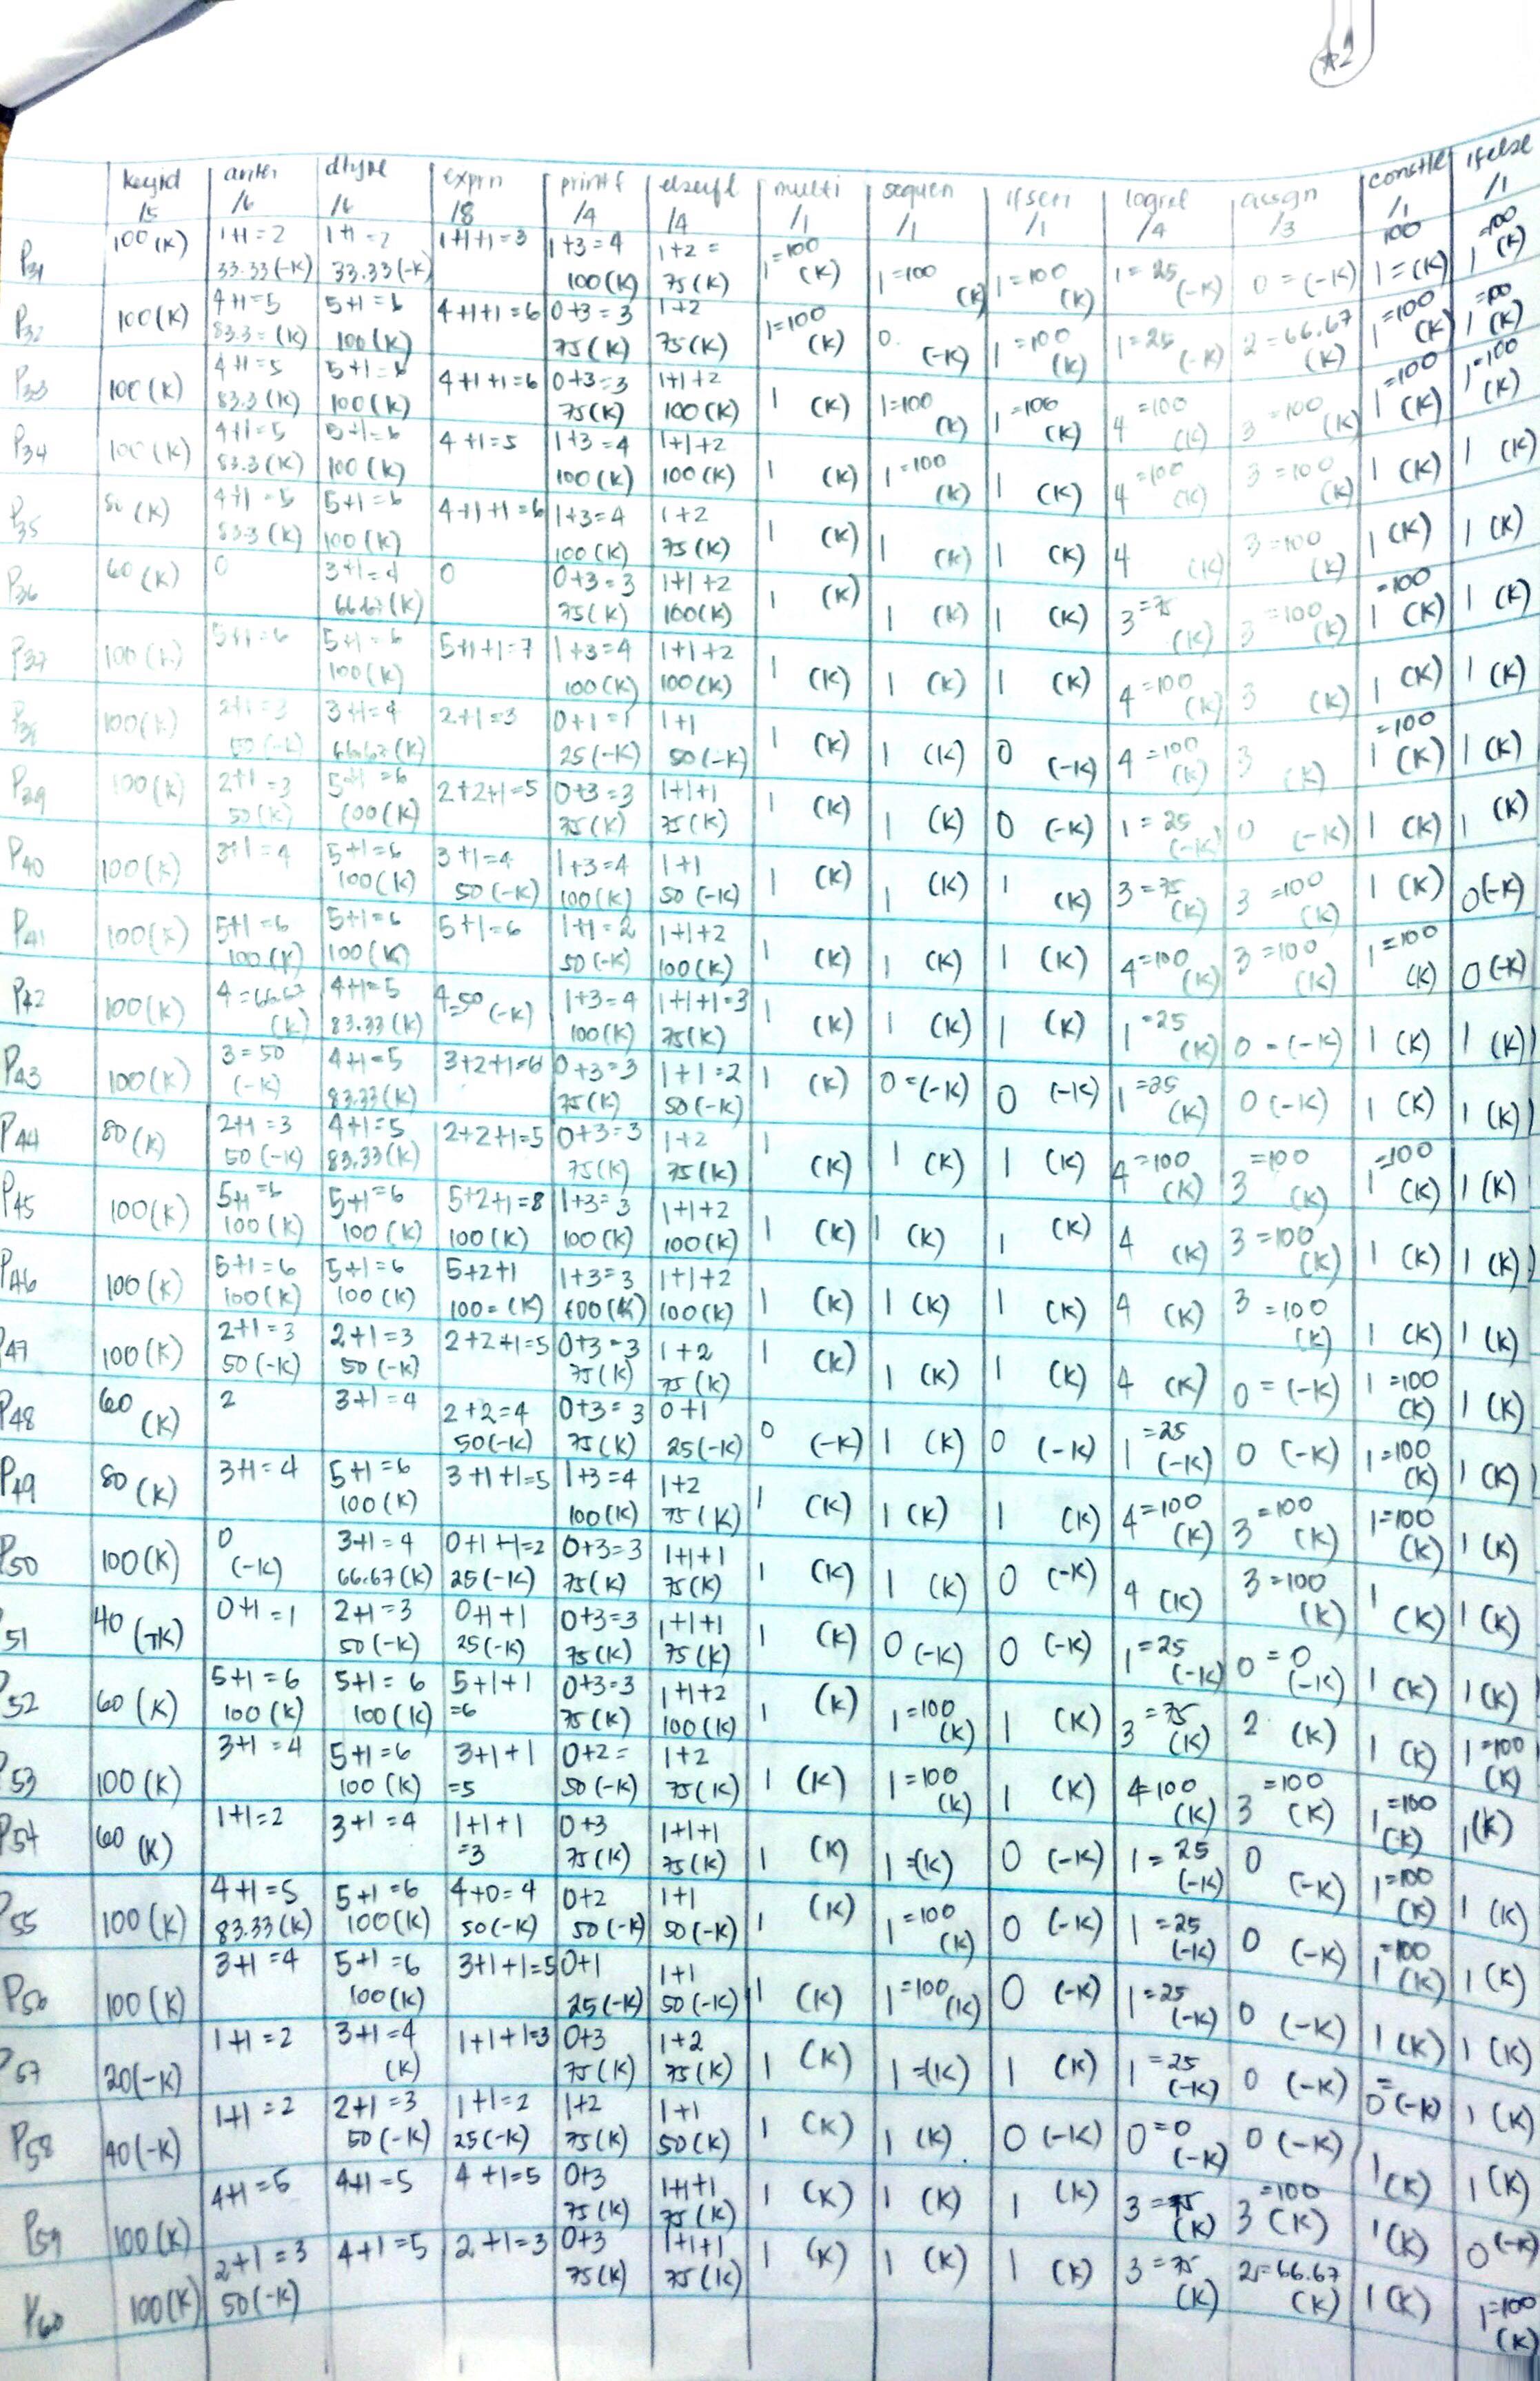 *2
keyid anter dtype exprn printf elseifl multi sequen ifsen logrel assgn constle ifelse
/5 /6 /6 /8 /4 /4 /1 /1 /1 /4 /3 /1 /1
P31 100 (K) 1+1=2 33.33 (-K) 1+1=2 33.33 (-K) 1+1+1=3 1+3=4 100 (K) 1+2= 75 (K) 1=100 (K) 1=100 (K) 1=100 (K) 1=25 (-K) 0=(-K) 100 1=(K) 1=100 (K)
P32 100 (K) 4+1=5 83.3=(K) 5+1=6 100 (K) 4+1+1=6 0+3=3 75 (K) 1+2 75 (K) 1=100 (K) 0. (-K) 1=100 (K) 1=25 (-K) 2=66.67 (K) 1=100 (K) 1=100 (K)
P33 100 (K) 4+1=5 83.3 (K) 5+1=6 100 (K) 4+1+1=6 0+3=3 75 (K) 1+1+2 100 (K) 1 (K) 1=100 (K) 1=100 (K) 4=100 (K) 3=100 (K) 1=100 (K) 1=100 (K)
P34 100 (K) 4+1=5 83.3 (K) 5+1=6 100 (K) 4+1=5 1+3=4 100 (K) 1+1+2 100 (K) 1 (K) 1=100 (K) 1 (K) 4=100 (K) 3=100 (K) 1 (K) 1 (K)
P35 80 (K) 4+1=5 83.3 (K) 5+1=6 100 (K) 4+1+1=6 1+3=4 100 (K) 1+2 75 (K) 1 (K) 1 (K) 1 (K) 4 (K) 3=100 (K) 1 (K) 1 (K)
P36 60 (K) 0 3+1=4 66.67 (K) 0 0+3=3 75 (K) 1+1+2 100 (K) 1 (K) 1 (K) 1 (K) 3=75 (K) 3=100 (K) 1=100 (K) 1 (K)
P37 100 (K) 5+1=6 5+1=6 100 (K) 5+1+1=7 1+3=4 100 (K) 1+1+2 100 (K) 1 (K) 1 (K) 1 (K) 4=100 (K) 3 (K) 1 (K) 1 (K)
P38 100 (K) 2+1=3 50 (-K) 3+1=4 66.67 (K) 2+1=3 0+1=1 25 (-K) 1+1 50 (-K) 1 (K) 1 (K) 0 (-K) 4=100 (K) 3 (K) 1=100 (K) 1 (K)
P39 100 (K) 2+1=3 50 (K) 5+1=6 100 (K) 2+2+1=5 0+3=3 75 (K) 1+1+1 75 (K) 1 (K) 1 (K) 0 (-K) 1=25 (-K) 0 (-K) 1 (K) 1 (K)
P40 100 (K) 3+1=4 5+1=6 100 (K) 3+1=4 50 (-K) 1+3=4 100 (K) 1+1 50 (-K) 1 (K) 1 (K) 1 (K) 3=75 (K) 3=100 (K) 1 (K) 0 (-K)
P41 100 (K) 5+1=6 100 (K) 5+1=6 100 (K) 5+1=6 1+1=2 50 (-K) 1+1+2 100 (K) 1 (K) 1 (K) 1 (K) 4=100 (K) 3=100 (K) 1=100 (K) 0 (-K)
P42 100 (K) 4=66.67 (K) 4+1=5 83.33 (K) 4=50 (-K) 1+3=4 100 (K) 1+1+1=3 75 (K) 1 (K) 1 (K) 1 (K) 1=25 (K) 0=(-K) 1 (K) 1 (K)
P43 100 (K) 3=50 (-K) 4+1=5 83.33 (K) 3+2+1=6 0+3=3 75 (K) 1+1=2 50 (-K) 1 (K) 0=(-K) 0 (-K) 1=25 (K) 0 (-K) 1 (K) 1 (K)
P44 80 (K) 2+1=3 50 (-K) 4+1=5 83.33 (K) 2+2+1=5 0+3=3 75 (K) 1+2 75 (K) 1 (K) 1 (K) 1 (K) 4=100 (K) 3=100 (K) 1=100 (K) 1 (K)
P45 100 (K) 5+1=6 100 (K) 5+1=6 100 (K) 5+2+1=8 100 (K) 1+3=3 100 (K) 1+1+2 100 (K) 1 (K) 1 (K) 1 (K) 4 (K) 3=100 (K) 1 (K) 1 (K)
P46 100 (K) 5+1=6 100 (K) 5+1=6 100 (K) 5+2+1 100=(K) 1+3=3 100 (K) 1+1+2 100 (K) 1 (K) 1 (K) 1 (K) 4 (K) 3=100 (K) 1 (K) 1 (K)
P47 100 (K) 2+1=3 50 (-K) 2+1=3 50 (-K) 2+2+1=5 0+3=3 75 (K) 1+2 75 (K) 1 (K) 1 (K) 1 (K) 4 (K) 0=(-K) 1=100 (K) 1 (K)
P48 60 (K) 2 3+1=4 2+2=4 50 (-K) 0+3=3 75 (K) 0+1 25 (-K) 0 (-K) 1 (K) 0 (-K) 1=25 (-K) 0 (-K) 1=100 (K) 1 (K)
P49 80 (K) 3+1=4 5+1=6 100 (K) 3+1+1=5 1+3=4 100 (K) 1+2 75 (K) 1 (K) 1 (K) 1 (K) 4=100 (K) 3=100 (K) 1=100 (K) 1 (K)
P50 100 (K) 0 (-K) 3+1=4 66.67 (K) 0+1+1=2 25 (-K) 0+3=3 75 (K) 1+1+1 75 (K) 1 (K) 1 (K) 0 (-K) 4 (K) 3=100 (K) 1 (K) 1 (K)
51 40 (-K) 0+1=1 2+1=3 50 (-K) 0+1+1 25 (-K) 0+3=3 75 (K) 1+1+1 75 (K) 1 (K) 0 (-K) 0 (-K) 1=25 (-K) 0=0 (-K) 1 (K) 1 (K)
P52 60 (K) 5+1=6 100 (K) 5+1=6 100 (K) 5+1+1 =6 0+3=3 75 (K) 1+1+2 100 (K) 1 (K) 1=100 (K) 1 (K) 3=75 (K) 2 (K) 1 (K) 1 (K)
P53 100 (K) 3+1=4 5+1=6 100 (K) 3+1+1 =5 0+2= 50 (-K) 1+2 75 (K) 1 (K) 1=100 (K) 1 (K) 4=100 (K) 3=100 (K) 1 (K) 1=100 (K)
P54 60 (K) 1+1=2 3+1=4 1+1+1 =3 0+3 75 (K) 1+1+1 75 (K) 1 (K) 1=(K) 0 (-K) 1=25 (-K) 0 (-K) 1=100 (K) 1 (K)
P55 100 (K) 4+1=5 83.33 (K) 5+1=6 100 (K) 4+0=4 50 (-K) 0+2 50 (-K) 1+1 50 (-K) 1 (K) 1=100 (K) 0 (-K) 1=25 (-K) 0 (-K) 1=100 (K) 1 (K)
P56 100 (K) 3+1=4 5+1=6 100 (K) 3+1+1=5 0+1 25 (-K) 1+1 50 (-K) 1 (K) 1=100 (K) 0 (-K) 1=25 (-K) 0 (-K) 1=100 (K) 1 (K)
P57 20 (-K) 1+1=2 3+1=4 (K) 1+1+1=3 0+3 75 (K) 1+2 75 (K) 1 (K) 1=(K) 1 (K) 1=25 (-K) 0 (-K) 1 (K) 1 (K)
P58 40 (-K) 1+1=2 2+1=3 50 (-K) 1+1=2 25 (-K) 1+2 75 (K) 1+1 50 (K) 1 (K) 1 (K). 0 (-K) 0=0 (-K) 0 (-K) 0=(-K) 1 (K)
P59 100 (K) 4+1=5 4+1=5 4+1=5 0+3 75 (K) 1+1+1 75 (K) 1 (K) 1 (K) 1 (K) 3=75 (K) 3=100 (K) 1 (K) 1 (K)
P60 100 (K) 2+1=3 50 (-K) 4+1=5 2+1=3 0+3 75 (K) 1+1+1 75 (K) 1 (K) 1 (K) 1 (K) 3=75 (K) 2=66.67 (K) 1 (K) 0 (-K)
1 (K) 1=100 (K)